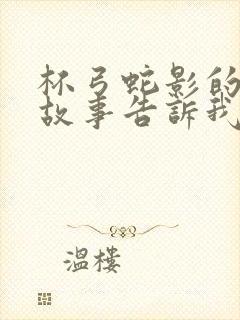 杯弓蛇影的
故事告訴我
溫樓